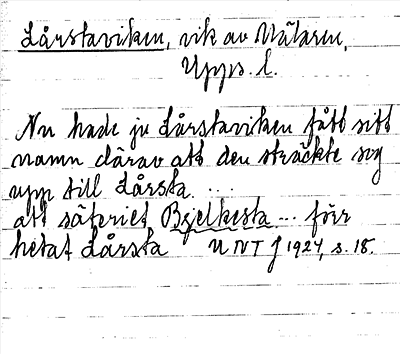 Lårstaviken, vik av Mälaren,
Upps. l.
Nu hade ju Lårstaviken fått sitt
namn därav att den sträckte sig
upp till Lårsta ...
att säteriet Bjelkesta ... förr
hetat Lårsta UNT J 1924, s. 18.